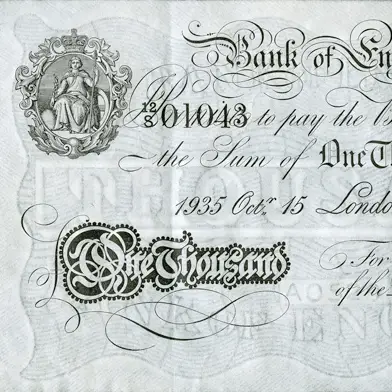 Bank of En
12/S 01043 to pay the B
the Sum of One T
1935 Octr. 15 Londo
£ One Thousand
For
of the